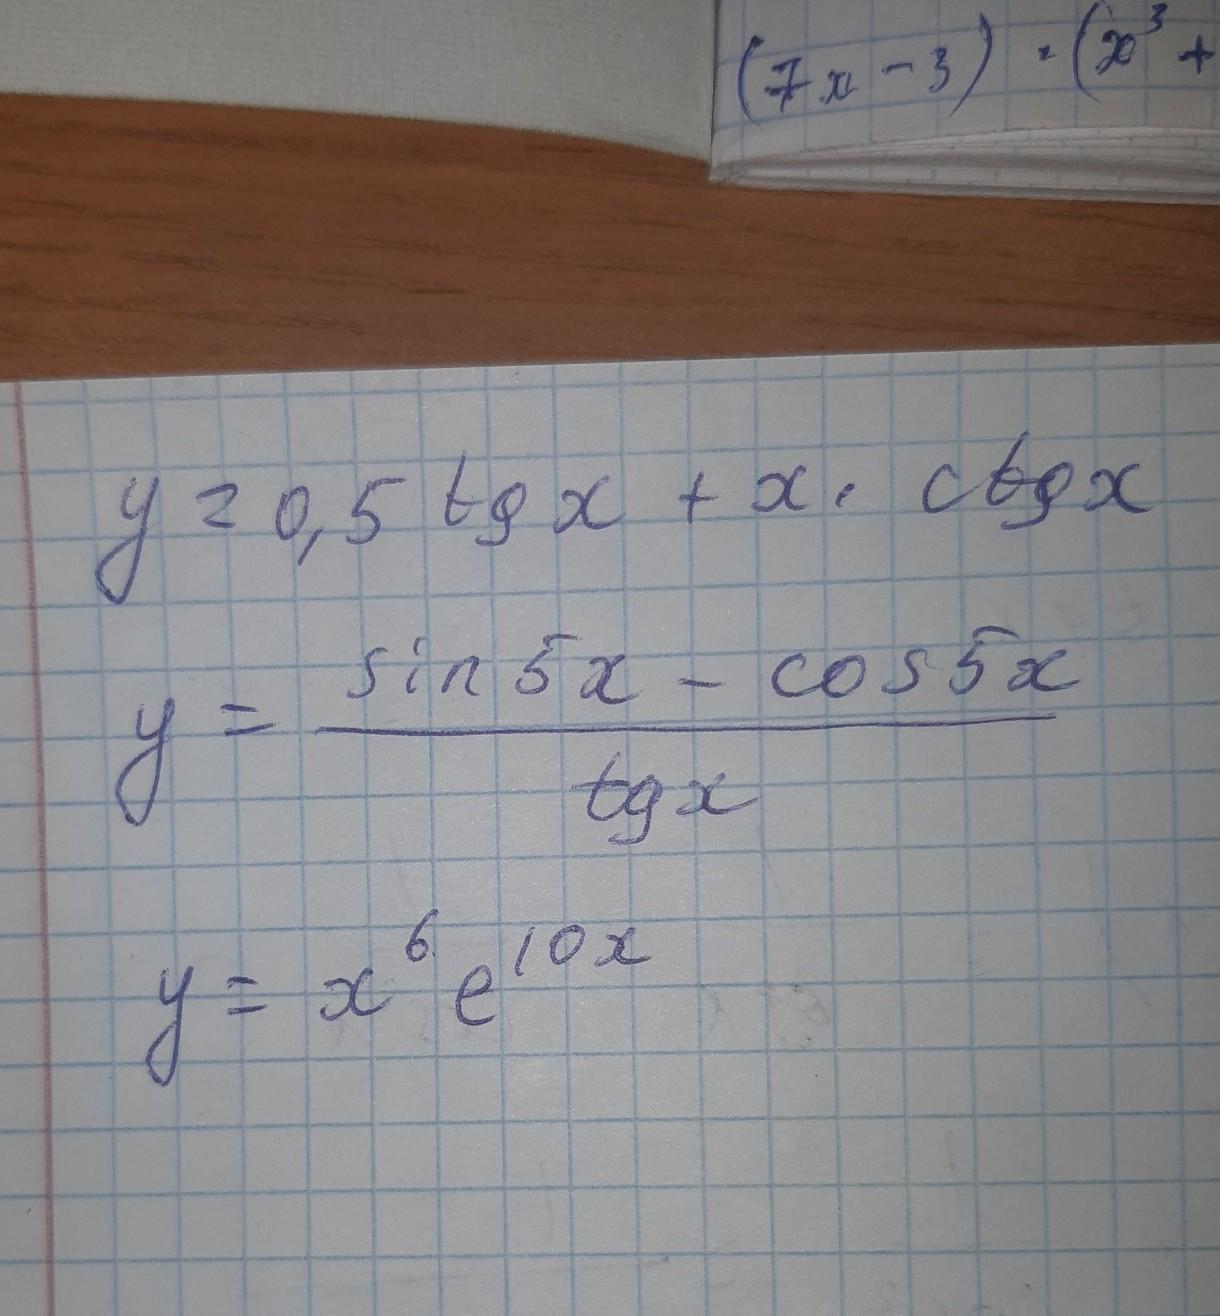 (7x - 3) · (x³ +
y = 0,5 tg x + x · ctg x
y = (sin 5x - cos 5x) / tg x
y = x⁶ e¹⁰ˣ